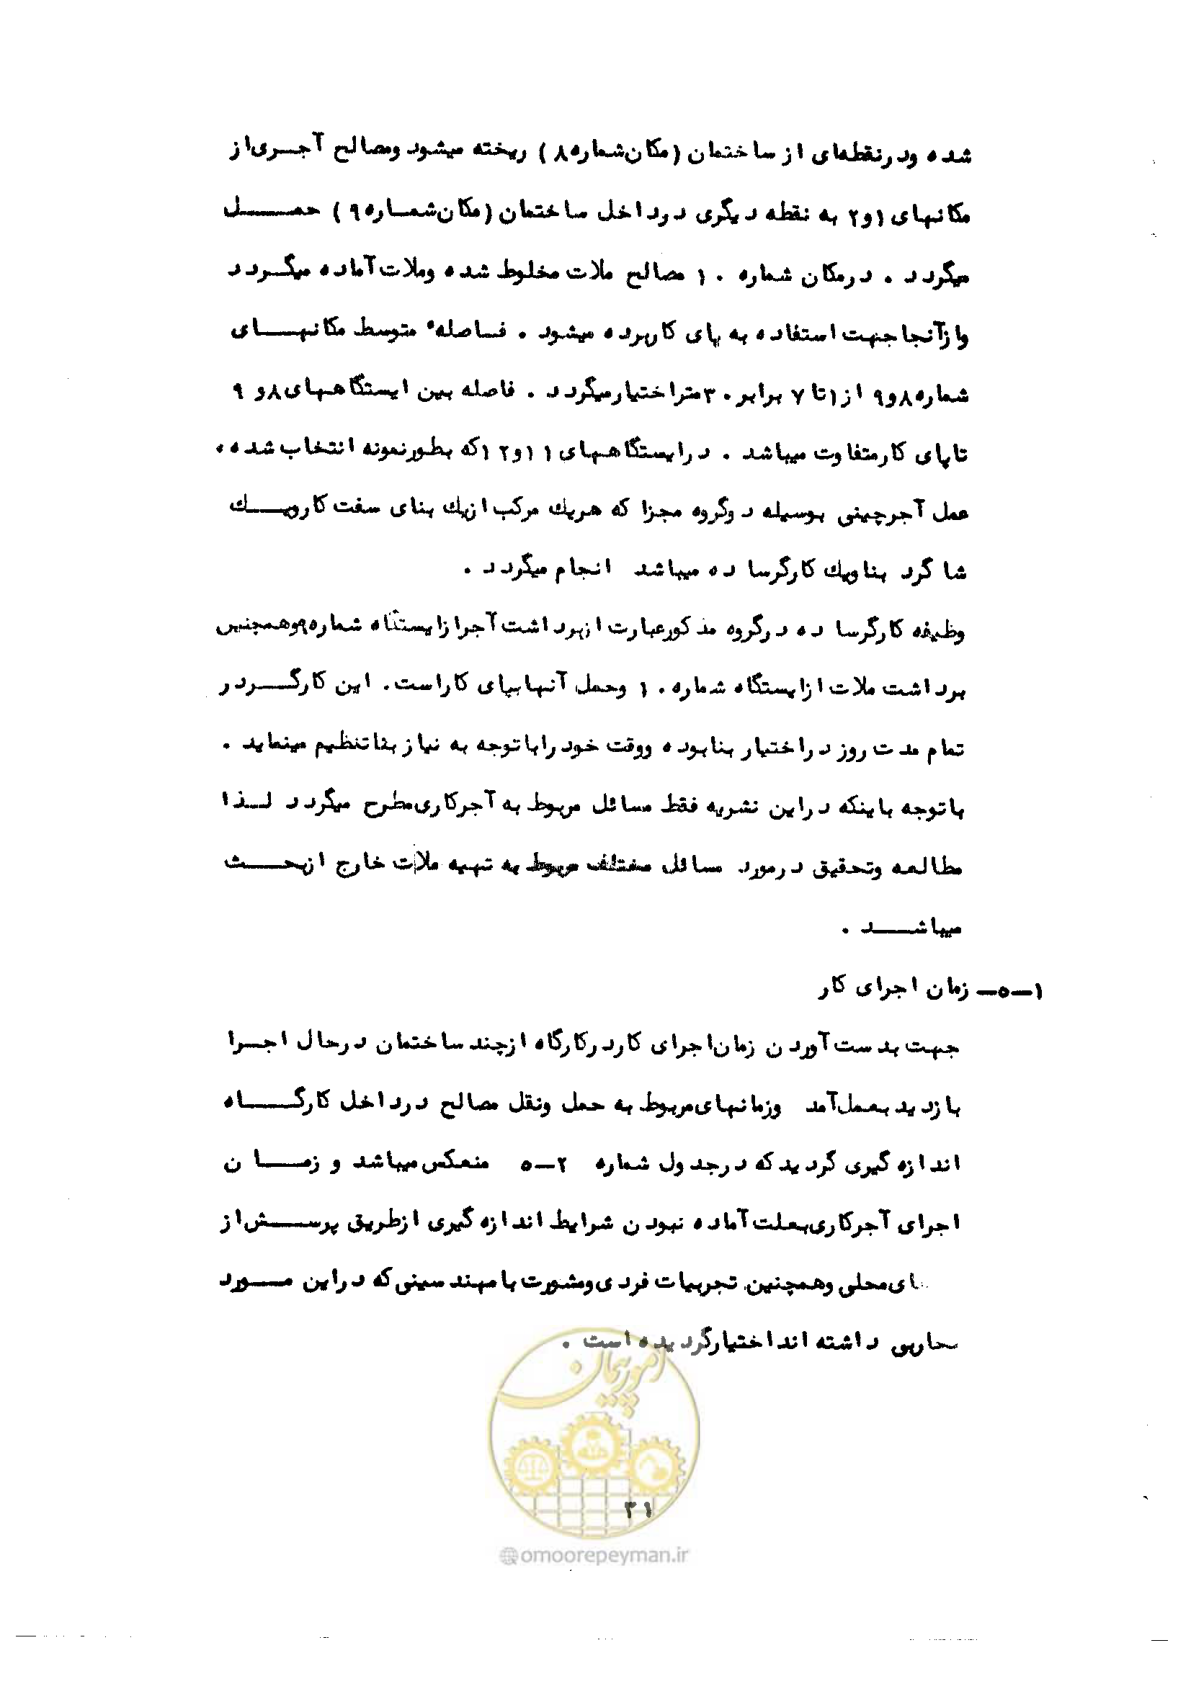 شده ودرنقطه‌ای از ساختمان (مکان‌شماره ۸) ریخته میشود ومصالح آجری از
مکانهای ۱و۲ به نقطه دیگری درداخل ساختمان (مکان‌شماره ۹) حمل
میگردد . درمکان شماره ۱۰ مصالح ملات مخلوط شده وملات آماده میگردد
وازآنجا جهت استفاده به پای کاربرده میشود . فاصلهٔ متوسط مکانهای
شماره ۸و۹ از ۱تا ۷ برابر ۳۰ متراختیارمیگردد . فاصله بین ایستگاههای ۸و ۹
تاپای کارمتفاوت میباشد . درایستگاههای ۱۱و۱۲که بطورنمونه انتخاب شده ،
عمل آجرچینی بوسیله دوگروه مجزا که هریك مرکب ازیك بنای سفت کارویك
شاگرد بناویك کارگرساده میباشد انجام میگردد .
وظیفه کارگرساده درگروه مذکورعبارت ازبرداشت آجرازایستگاه شماره ۹وهمچنین
برداشت ملات ازایستگاه شماره ۱۰ وحمل آنهابپای کاراست . این کارگردر
تمام مدت روز دراختیار بنابوده ووقت خودراباتوجه به نیاز بناتنظیم مینماید .
باتوجه باینکه دراین نشریه فقط مسائل مربوط به آجرکاری‌مطرح میگردد لذا
مطالعه وتحقیق درمورد مسائل مختلف مربوط به تهیه ملات خارج ازبحث
میباشد .
۱–۵– زمان اجرای کار
جهت بدست آوردن زمان‌اجرای کاردرکارگاه ازچند ساختمان درحال اجرا
بازدیدبعمل‌آمد وزمانهای‌مربوط به حمل ونقل مصالح درداخل کارگاه
اندازه گیری گردیدکه درجدول شماره ۲–۵ منعکس‌میباشد و زمان
اجرای آجرکاری‌بعلت آماده نبودن شرایط اندازه‌گیری ازطریق پرسش‌از
ای‌محلی وهمچنین تجربیات فردی‌ومشورت بامهندسینی‌که دراین مورد
داشته انداختیارگردیده‌است .
امور پیمان
۳۱
omoorepeyman.ir